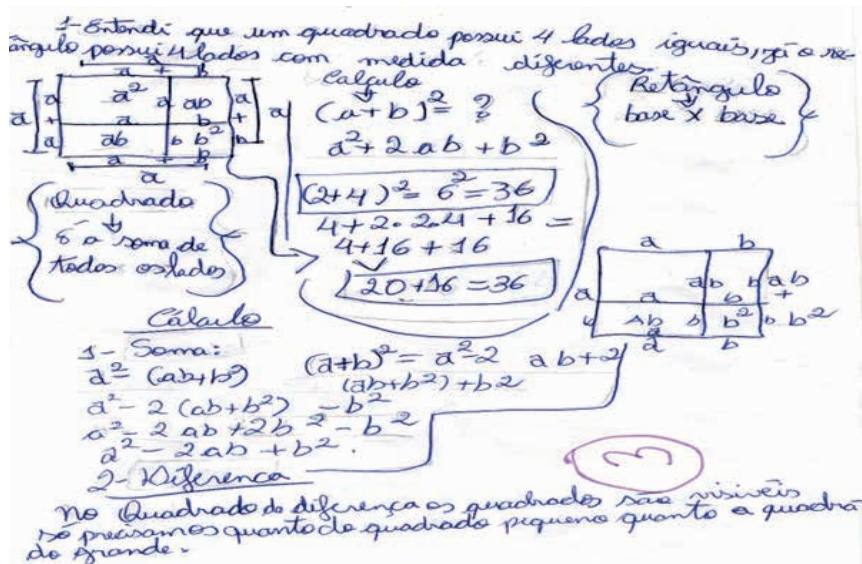 1- Entendi que um quadrado possui 4 lados iguais, já o re-
ângulo possui 4 lados com medida diferentes.
a + b
a² a ab a
a + a a b + b a
ab b b² b
a + b
a
Quadrado
É a soma de
todos os lados
Calculo
(a+b)² = ?
a² + 2 ab + b²
(2+4)² = 6² = 36
4 + 2 . 2.4 + 16 =
4 + 16 + 16
20 + 16 = 36
Retângulo
base x base
a b
a a ab b b ab
+
b Ab b b² b b²
a b
Cálculo
1- Soma:
a² = (ab+b²)
a² - 2 (ab+b²) - b²
a² - 2 ab + 2b² - b²
a² - 2ab + b².
(a+b)² = a² - 2 ab + 2
(ab+b²) + b2
2- Diferença
3
No Quadrado do diferença os quadrados são visiveis
só precisamos quanto do quadrado piqueno quanto a quadra-
do grande.